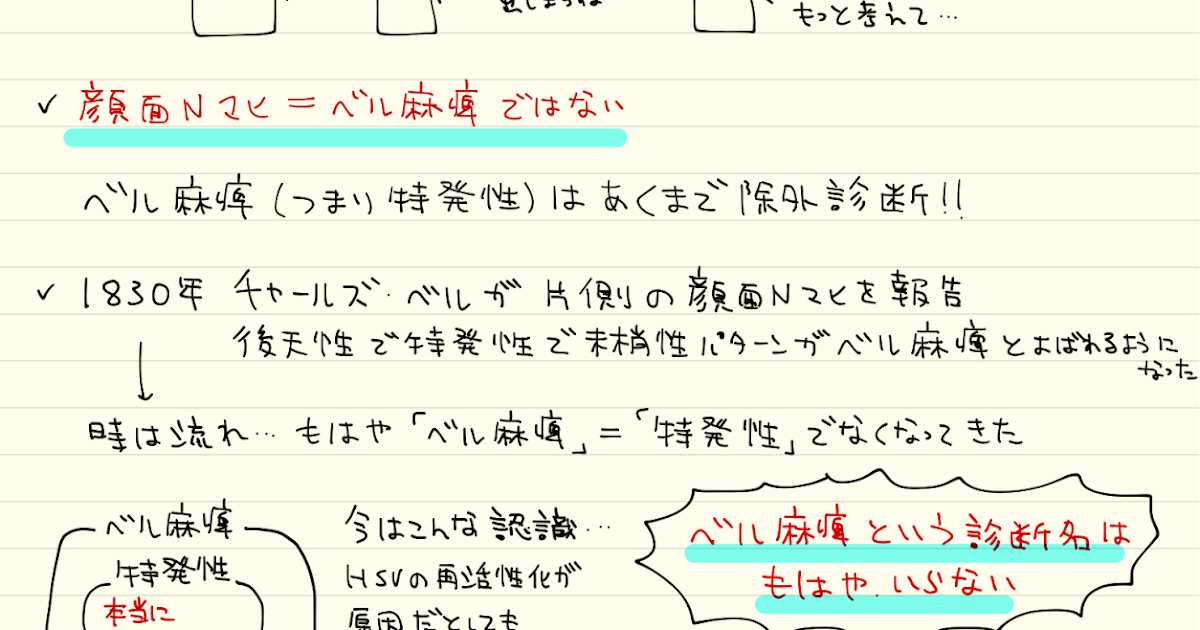 もっと考えて…
✓ 顔面Nマヒ＝ベル麻痺ではない
ベル麻痺(つまり特発性)はあくまで除外診断!!
✓ 1830年 チャールズ・ベルが片側の顔面Nマヒを報告
後天性で特発性で末梢性パターンがベル麻痺とよばれるように
なった
↓
時は流れ… もはや「ベル麻痺」＝「特発性」でなくなってきた
ベル麻痺
特発性
本当に
今はこんな認識…
HSVの再活性化が
原因だとしても
ベル麻痺という診断名は
もはや、いらない